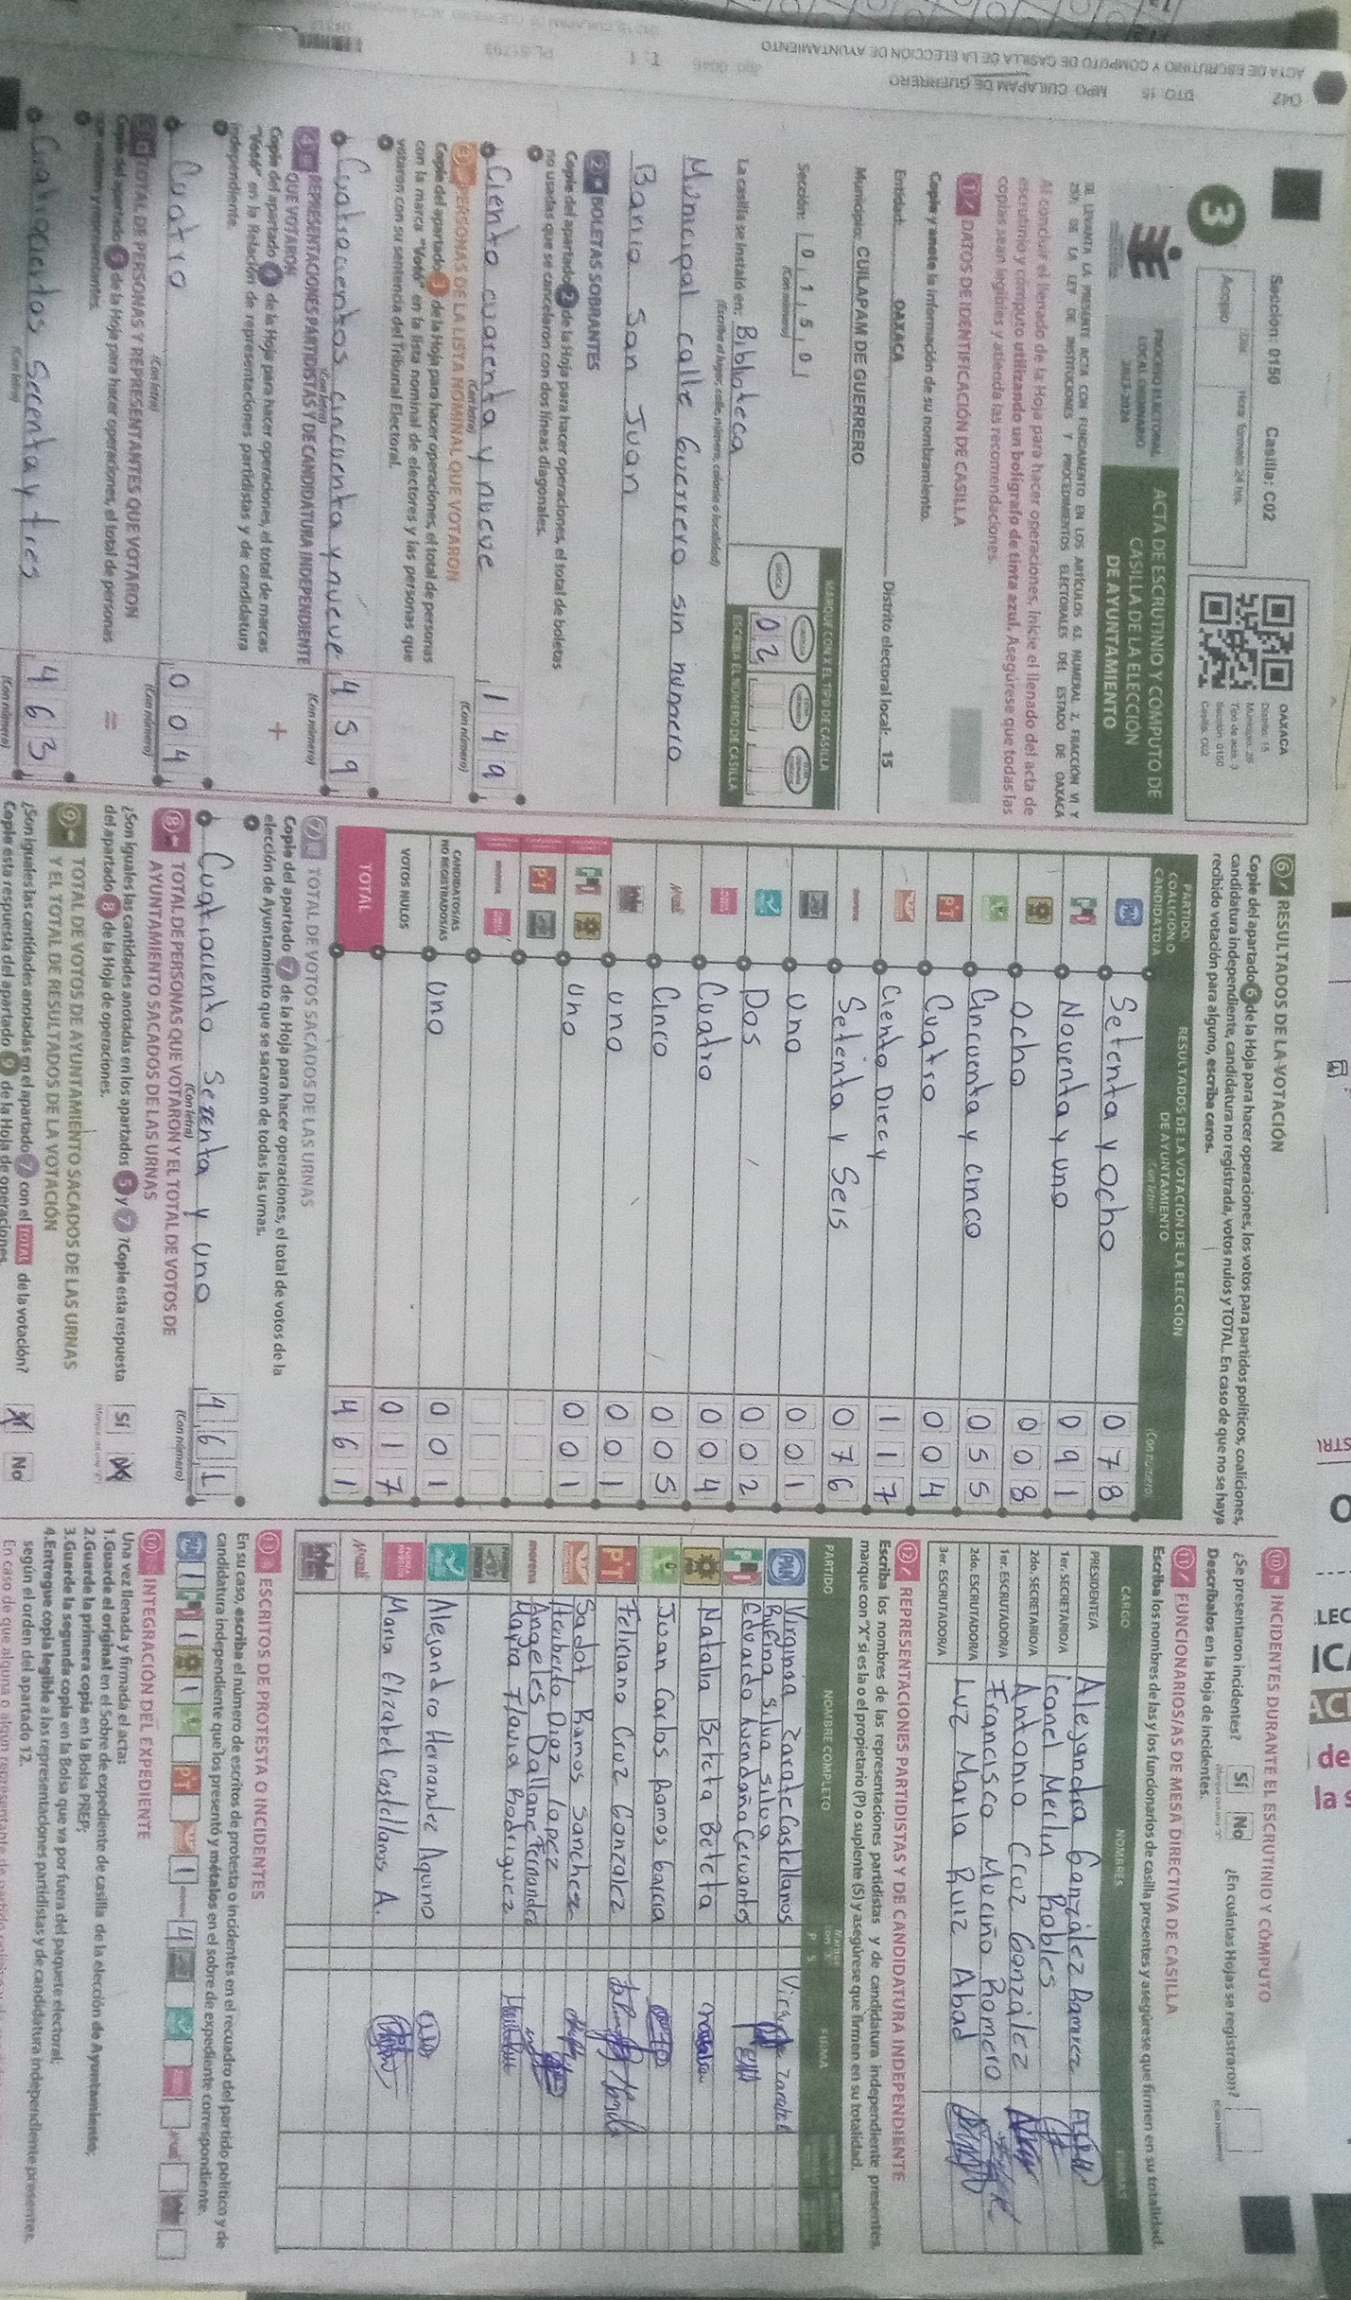 042 DTO. 15 MPO. CUILAPAM DE GUERRERO
ACTA DE ESCRUTINIO Y COMPUTO DE CASILLA DE LA ELECCION DE AYUNTAMIENTO
Sección: 0150 Casilla: C02
3
Acopio
Hora formato 24 hrs.
OAXACA
Distrito: 15
Sección: 0150
Casilla: C02
PROCESO ELECTORAL
LOCAL ORDINARIO
2023-2024
ACTA DE ESCRUTINIO Y CÓMPUTO DE
CASILLA DE LA ELECCIÓN
DE AYUNTAMIENTO
SE LEVANTA LA PRESENTE ACTA CON FUNDAMENTO EN LOS ARTÍCULOS 63, NUMERAL 2, FRACCIÓN VI Y
257, DE LA LEY DE INSTITUCIONES Y PROCEDIMIENTOS ELECTORALES DEL ESTADO DE OAXACA
Al concluir el llenado de la Hoja para hacer operaciones, inicie el llenado del acta de
escrutinio y cómputo utilizando un bolígrafo de tinta azul. Asegúrese que todas las
copias sean legibles y atienda las recomendaciones.
1 DATOS DE IDENTIFICACIÓN DE CASILLA
Copie y anote la información de su nombramiento.
Entidad: OAXACA Distrito electoral local: 15
Municipio: CUILAPAM DE GUERRERO
Sección: 0 1 5 0
(Con número)
MARQUE CON X EL TIPO DE CASILLA
0 2
ESCRIBA EL NÚMERO DE CASILLA
La casilla se instaló en: Biblioteca
(Escriba el lugar, calle, número, colonia o localidad)
Municipal calle Guerrero sin numero
Barrio San Juan
2 BOLETAS SOBRANTES
Copie del apartado 2 de la Hoja para hacer operaciones, el total de boletas
no usadas que se cancelaron con dos líneas diagonales.
Ciento cuarenta y nueve 1 4 9
(Con letra) (Con número)
3 PERSONAS DE LA LISTA NOMINAL QUE VOTARON
Copie del apartado 3 de la Hoja para hacer operaciones, el total de personas
con la marca "Votó" en la lista nominal de electores y las personas que
votaron con su sentencia del Tribunal Electoral.
Cuatrocientos cincuenta y nueve 4 5 9
(Con letra) (Con número)
4 REPRESENTACIONES PARTIDISTAS Y DE CANDIDATURA INDEPENDIENTE
QUE VOTARON
Copie del apartado 4 de la Hoja para hacer operaciones, el total de marcas
"Votó" en la Relación de representaciones partidistas y de candidatura
independiente.
+
Cuatro 0 0 4
(Con letra) (Con número)
5 TOTAL DE PERSONAS Y REPRESENTANTES QUE VOTARON
Copie del apartado 5 de la Hoja para hacer operaciones, el total de personas
que votaron y representantes.
=
Cuatrocientos secenta y tres 4 6 3
(Con letra) (Con número)
6 RESULTADOS DE LA VOTACIÓN
Copie del apartado 6 de la Hoja para hacer operaciones, los votos para partidos políticos, coaliciones,
candidatura independiente, candidatura no registrada, votos nulos y TOTAL. En caso de que no se haya
recibido votación para alguno, escriba ceros.
PARTIDO,
COALICIÓN O
CANDIDATO/A
RESULTADOS DE LA VOTACIÓN DE LA ELECCIÓN
DE AYUNTAMIENTO
(Con letra) (Con número)
PAN Setenta y ocho 0 7 8
PRI Noventa y uno 0 9 1
Ocho 0 0 8
Cincuenta y cinco 0 5 5
PT Cuatro 0 0 4
Ciento Diecy 1 1 7
morena Setenta y Seis 0 7 6
Uno 0 0 1
Dos 0 0 2
Cuatro 0 0 4
Mujer Cinco 0 0 5
Uno 0 0 1
PRI Uno 0 0 1
PT
morena
CANDIDATOS/AS
NO REGISTRADOS/AS Uno 0 0 1
VOTOS NULOS 0 1 7
TOTAL 4 6 1
7 TOTAL DE VOTOS SACADOS DE LAS URNAS
Copie del apartado 7 de la Hoja para hacer operaciones, el total de votos de la
elección de Ayuntamiento que se sacaron de todas las urnas.
Cuatrociento Sezenta y uno 4 6 1
(Con letra) (Con número)
8 TOTAL DE PERSONAS QUE VOTARON Y EL TOTAL DE VOTOS DE
AYUNTAMIENTO SACADOS DE LAS URNAS
¿Son iguales las cantidades anotadas en los apartados 5 y 7? Copie esta respuesta
del apartado 8 de la Hoja de operaciones.
Sí No
9 TOTAL DE VOTOS DE AYUNTAMIENTO SACADOS DE LAS URNAS
Y EL TOTAL DE RESULTADOS DE LA VOTACIÓN
¿Son iguales las cantidades anotadas en el apartado 7 con el TOTAL de la votación?
Copie esta respuesta del apartado 9 de la Hoja de operaciones
Sí No
10 INCIDENTES DURANTE EL ESCRUTINIO Y CÓMPUTO
¿Se presentaron incidentes? Sí No ¿En cuántas Hojas se registraron?
Descríbalos en la Hoja de incidentes.
11 FUNCIONARIOS/AS DE MESA DIRECTIVA DE CASILLA
Escriba los nombres de las y los funcionarios de casilla presentes y asegúrese que firmen en su totalidad.
CARGO NOMBRES FIRMAS
PRESIDENTE/A Alejandra González Ramirez
1er. SECRETARIO/A Leonel Merlin Robles
2do. SECRETARIO/A Antonia Cruz González
1er. ESCRUTADOR/A Francisco Muciño Romero
2do. ESCRUTADOR/A Luz María Ruiz Abad
3er. ESCRUTADOR/A
12 REPRESENTACIONES PARTIDISTAS Y DE CANDIDATURA INDEPENDIENTE
Escriba los nombres de las representaciones partidistas y de candidatura independiente presentes,
marque con "X" si es la o el propietario (P) o suplente (S) y asegúrese que firmen en su totalidad.
PARTIDO NOMBRE COMPLETO P S FIRMA
PAN Virginia Zarate Castellanos
Rufina Silva Silva
PRI Eduardo Avendaño Cervantes
Natalia Beteta Beteta
Juan Carlos Ramos Garcia
PT Feliciano Cruz Gonzalez
Sadot Ramos Sanchez
Heriberto Diaz Lopez
morena Angeles Dallane Fernanda
Mayra Flavia Rodriguez
Alejandro Hernandez Aquino
Maria Elizabet Castellanos A.
Mujer
13 ESCRITOS DE PROTESTA O INCIDENTES
En su caso, escriba el número de escritos de protesta o incidentes en el recuadro del partido político y de
candidatura independiente que los presentó y métalos en el sobre de expediente correspondiente.
PAN 1 PRI 1 1 PT 1 morena 4
INTEGRACIÓN DEL EXPEDIENTE
Una vez llenada y firmada el acta:
1.Guarda el original en el Sobre de expediente de casilla de la elección de Ayuntamiento;
2.Guarda la primera copia en la Bolsa PREP;
3.Guarde la segunda copia en la Bolsa que va por fuera del paquete electoral;
4.Entregue copia legible a las representaciones partidistas y de candidatura independiente presentes,
según el orden del apartado 12.